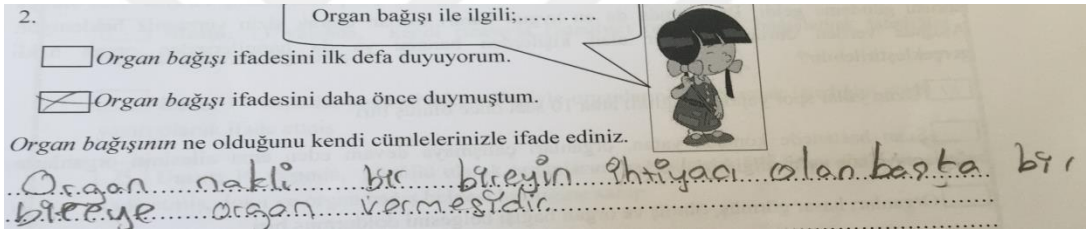 2.
Organ bağışı ile ilgili;...........
Organ bağışı ifadesini ilk defa duyuyorum.
Organ bağışı ifadesini daha önce duymuştum.
Organ bağışının ne olduğunu kendi cümlelerinizle ifade ediniz.
Organ nakli bir bireyin ihtiyacı olan başka bir
bireye organ vermesidir.